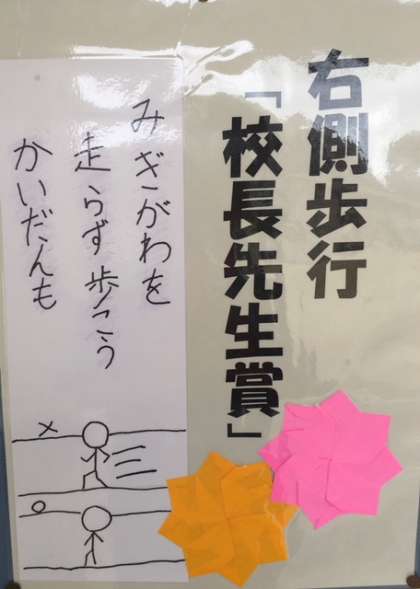 右側歩行
「校長先生賞」
みぎがわを
走らず歩こう
かいだんも
×
○